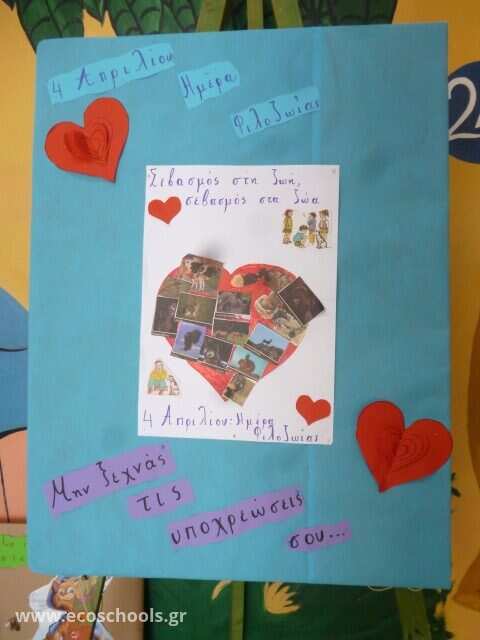 4 Απριλίου
Ημέρα
Φιλοζωίας
Σεβασμός στη ζωή,
σεβασμός στα ζώα
4 Απριλίου: Ημέρα
Φιλοζωίας
Μην ξεχνάς
τις
υποχρεώσεις
σου...
www.ecoschools.gr